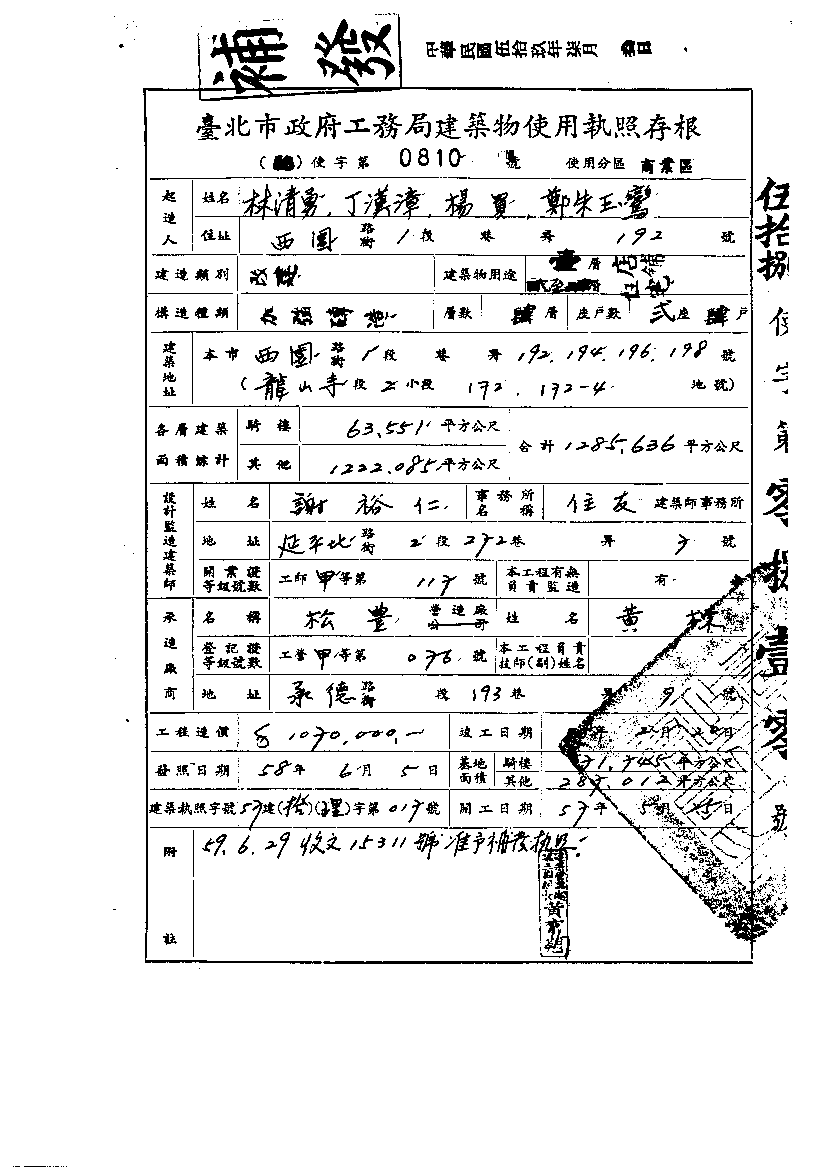 補發
中華民國伍拾玖年柒月 日
臺北市政府工務局建築物使用執照存根
( )使字第 0810 號 使用分區 商業區
起造人 姓名 林清勇、丁漢漳、楊買、鄭朱玉鸞
住址 西園 路街 1段 巷 弄 192 號
建造類別 改建 建築物用途 壹層 店舖 層 住宅
構造種類 加強磚造 層數 肆層 座戶數 弍座 肆戶
建築地址 本市 西園 路街 1段 巷 弄 192.194.196.198 號
(龍山寺段 2 小段 172.172-4 地號)
各層建築面積總計 騎樓 63.551 平方公尺 合計 1285.636 平方公尺
其他 1222.085 平方公尺
設計監造建築師 姓名 謝裕仁 事務所名稱 住友 建築師事務所
地址 延平北 路街 2段 272巷 弄 7 號
開業證等級號數 工師甲等第 117 號 本工程有無負責監造 有
承造廠商 名稱 松豊 營造廠公司 姓名 黃 棟
登記證等級號數 工營甲等第 076 號 本工程負責技師(副)姓名
地址 承德 路街 段 193巷 弄 91 號
工程造價 $1070,000.— 竣工日期 年 2月 日
發照日期 58年 6月 5日 基地面積 騎樓 71.745 平方公尺
其他 287.012 平方公尺
建築執照字號 57建( )(理)字第 017 號 開工日期 57年 5月 15日
附註 59.6.29 收文15311號准予補發執照:
伍拾捌使字第零捌壹零號